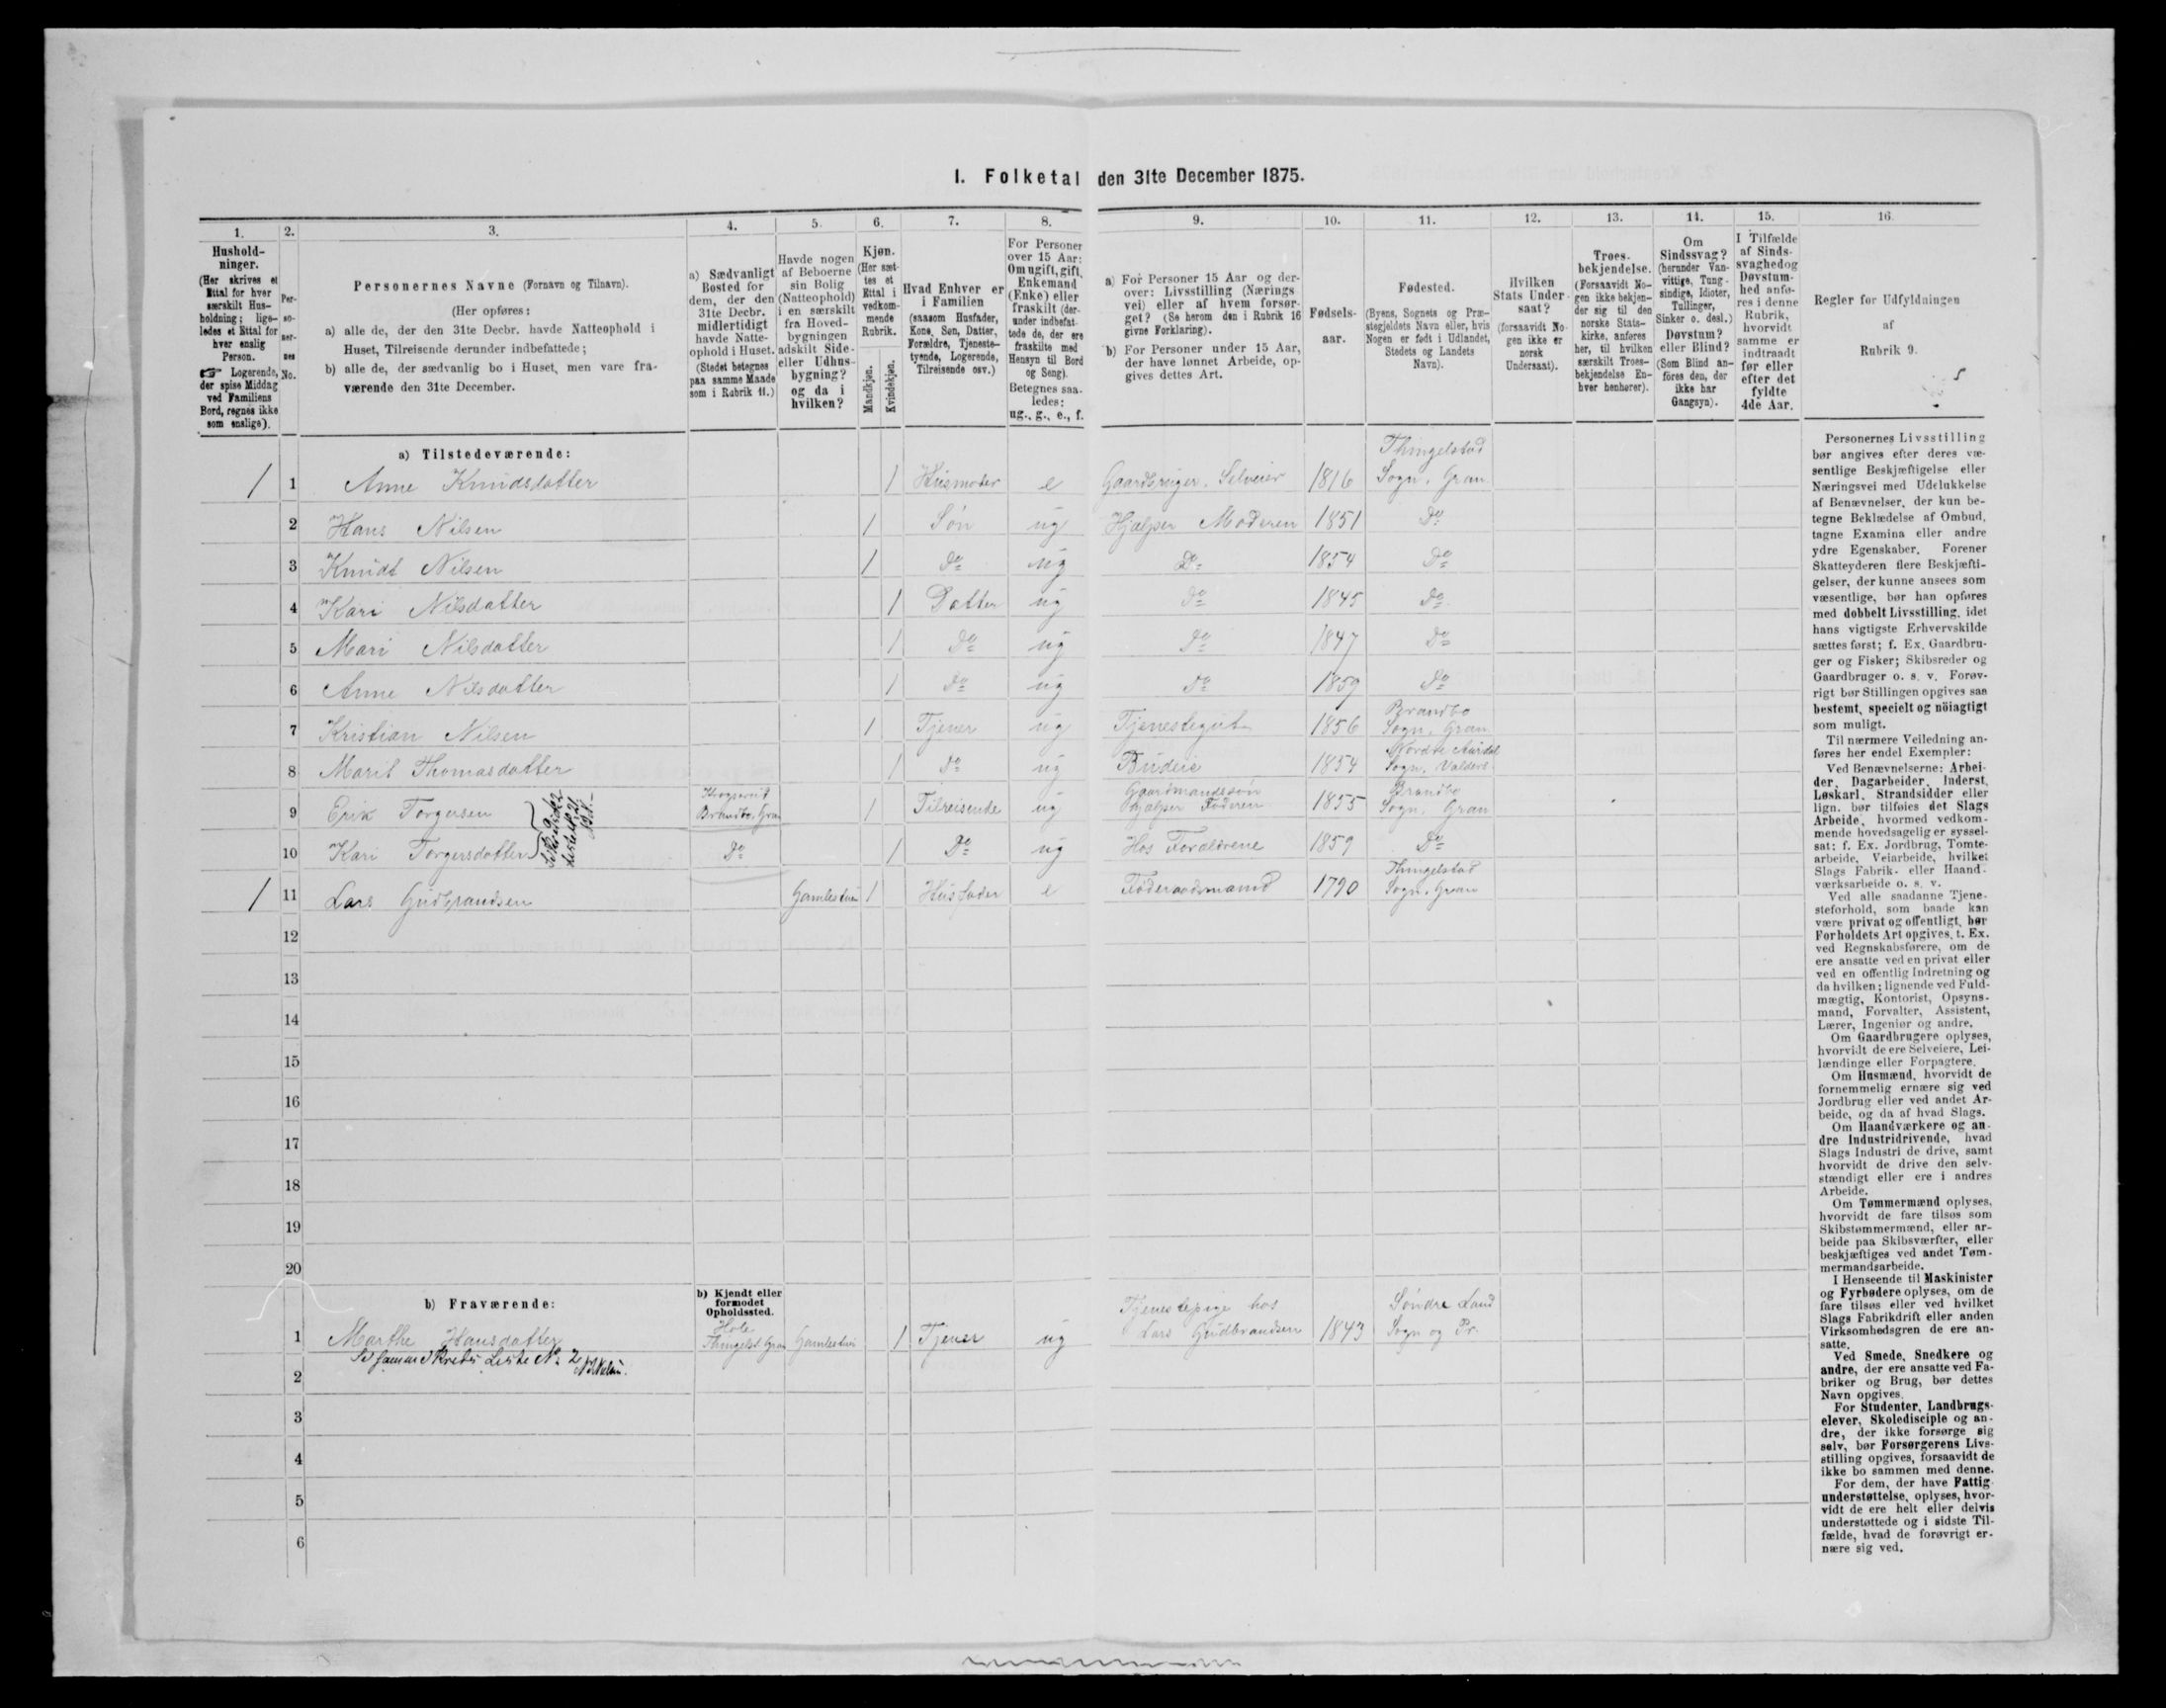 I. Folketal den 31te December 1875.
1. 2. 3. 4. 5. 6. 7. 8. 9. 10. 11. 12. 13. 14. 15. 16.
Hushold-
ninger.
(Her skrives et
Ettal for hver
særskilt Hus-
holdning; lige-
ledes et Ettal for
hver enslig
Person.
☞ Logerende,
der spise Middag
ved Familiens
Bord, regnes ikke
som enslige).
Per-
so-
ner-
nes
No.
Personernes Navne (Fornavn og Tilnavn).
(Her opføres:
a) alle de, der den 31te Decbr. havde Natteophold i
Huset, Tilreisende derunder indbefattede;
b) alle de, der sædvanlig bo i Huset, men vare fra-
værende den 31te December.
a) Sædvanligt
Bosted for
dem, der den
31te Decbr.
midlertidigt
havde Natte-
ophold i Huset.
(Stedet betegnes
paa samme Maade
som i Rubrik 11.)
Havde nogen
af Beboerne
sin Bolig
(Natteophold)
i en særskilt
fra Hoved-
bygningen
adskilt Side-
eller Udhus-
bygning?
og da i
hvilken?
Kjøn.
(Her sæt-
tes et
Ettal i
vedkom-
mende
Rubrik.
Mandkjøn.
Kvindekjøn.
Hvad Enhver er
i Familien
(saasom Husfader,
Kone, Søn, Datter,
Forældre, Tjeneste-
tyende, Logerende,
Tilreisende osv.)
For Personer
over 15 Aar:
Om ugift, gift,
Enkemand
(Enke) eller
fraskilt (der-
under indbefat-
tede de, der ere
fraskilte med
Hensyn til Bord
og Seng).
Betegnes saa-
ledes:
ug., g., e., f.
a) For Personer 15 Aar og der-
over: Livsstilling (Nærings-
vei) eller af hvem forsør-
get? (Se herom den i Rubrik 16
givne Forklaring).
b) For Personer under 15 Aar,
der have lønnet Arbeide, op-
gives dettes Art.
Fødsels-
aar.
Fødested.
(Byens, Sognets og Præ-
stegjeldets Navn eller, hvis
Nogen er født i Udlandet,
Stedets og Landets
Navn).
Hvilken
Stats Under-
saat?
(forsaavidt No-
gen ikke er
norsk
Undersaat).
Troes-
bekjendelse.
(Forsaavidt No-
gen ikke bekjen-
der sig til den
norske Stats-
kirke, anføres
her, til hvilken
særskilt Troes-
bekjendelse En-
hver henhører).
Om
Sindssvag?
(herunder Van-
vittige, Tung-
sindige, Idioter,
Tullinger,
Sinker o. desl.)
Døvstum?
eller Blind?
(Som Blind an-
føres den, der
ikke har
Gangsyn).
I Tilfælde
af Sinds-
svaghed og
Døvstum-
hed anfø-
res i denne
Rubrik,
hvorvidt
samme er
indtraadt
før eller
efter det
fyldte
4de Aar.
Regler for Udfyldningen
af
Rubrik 9.
a) Tilstedeværende:
1 1 Anne Knudsdatter 1 Husmoder e Gaardbruger. Selveier 1816 Thingelstad Sogn. Gran
2 Hans Nilsen 1 Søn ug Hjælper Moderen 1851 Do
3 Knudt Nilsen 1 Do ug Do 1854 Do
4 Kari Nilsdatter 1 Datter ug Do 1845 Do
5 Mari Nilsdatter 1 Do ug Do 1847 Do
6 Anne Nilsdatter 1 Do ug Do 1859 Do
7 Kristian Nilsen 1 Tjener ug Tjenestegut 1856 Brandbo Sogn. Gran
8 Marit Thomasdatter 1 Do ug Budeie 1854 Nordre Aurdal Sogn. Valders
9 Erik Torgersen Brandbo. Gran 1 Tilreisende ug Gaardmandssøn hjælper Faderen 1855 Brandbo Sogn. Gran
10 Kari Torgersdatter Do 1 Do ug Hos Forældrene 1859 Do
1 11 Lars Gudbrandsen Gamlestuen 1 Husfader e Føderaadsmand 1790 Thingelstad Sogn. Gran
12
13
14
15
16
17
18
19
20
b) Fraværende:
b) Kjendt eller
formodet
Opholdssted.
1 Marthe Hansdatter Hole Thingelst. Gran Gamlestuen 1 Tjener ug Tjenestepige hos Lars Gudbrandsen 1843 Søndre Land Sogn og Pr.
samme Kreds Liste No. 2
2
3
4
5
6
Personernes Livsstilling
bør angives efter deres væ-
sentlige Beskjæftigelse eller
Næringsvei med Udelukkelse
af Benævnelser, der kun be-
tegne Beklædelse af Ombud,
tagne Examina eller andre
ydre Egenskaber. Forener
Skatteyderen flere Beskjæfti-
gelser, der kunne ansees som
væsentlige, bør han opføres
med dobbelt Livsstilling, idet
hans vigtigste Erhvervskilde
sættes først; f. Ex. Gaardbru-
ger og Fisker; Skibsreder og
Gaardbruger o. s. v. Forøv-
rigt bør Stillingen opgives saa
bestemt, specielt og nöiagtigt
som muligt.
Til nærmere Veiledning an-
føres her endel Exempler:
Ved Benævnelserne: Arbei-
der, Dagarbeider, Inderst,
Løskarl, Strandsidder eller
lign. bør tilføies det Slags
Arbeide, hvormed vedkom-
mende hovedsagelig er syssel-
sat; f. Ex. Jordbrug, Tomte-
arbeide, Veiarbeide, hvilket
Slags Fabrik- eller Haand-
værksarbeide o. s. v.
Ved alle saadanne Tjene-
steforhold, som baade kan
være privat og offentligt, bør
Forholdets Art opgives, t. Ex.
ved Regnskabsførere, om de
ere ansatte ved en privat eller
ved en offentlig Indretning og
da hvilken; lignende ved Fuld-
mægtig, Kontorist, Opsyns-
mand, Forvalter, Assistent,
Lærer, Ingeniør og andre.
Om Gaardbrugere oplyses,
hvorvidt de ere Selveiere, Lei-
lændinge eller Forpagtere.
Om Husmænd, hvorvidt de
fornemmelig ernære sig ved
Jordbrug eller ved andet Ar-
beide, og da af hvad Slags.
Om Haandværkere og an-
dre Industridrivende, hvad
Slags Industri de drive, samt
hvorvidt de drive den selv-
stændigt eller ere i andres
Arbeide.
Om Tømmermænd oplyses,
hvorvidt de fare tilsøs som
Skibstømmermænd, eller ar-
beide paa Skibsværfter, eller
beskjæftiges ved andet Tøm-
mermandsarbeide.
I Henseende til Maskinister
og Fyrbødere oplyses, om de
fare tilsøs eller ved hvilket
Slags Fabrikdrift eller anden
Virksomhedsgren de ere an-
satte.
Ved Smede, Snedkere og
andre, der ere ansatte ved Fa-
briker og Brug, bør dettes
Navn opgives.
For Studenter, Landbrugs-
elever, Skoledisciple og an-
dre, der ikke forsørge sig
selv, bør Forsørgerens Livs-
stilling opgives, forsaavidt de
ikke bo sammen med denne.
For dem, der have Fattig-
understøttelse, oplyses, hvor-
vidt de ere helt eller delvis
understøttede og i sidste Til-
fælde, hvad de forøvrigt er-
nære sig ved.